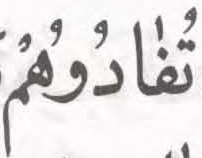 تُفَادُوهُمْ